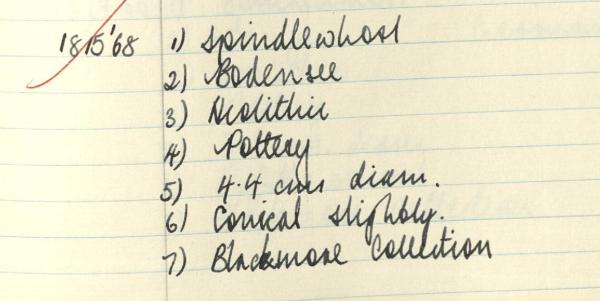 1815'68 1) Spindlewhorl
2) Bodensee
3) Neolithic
4) Pottery
5) 4.4 cms diam.
6) Conical slightly.
7) Blackmore Collection